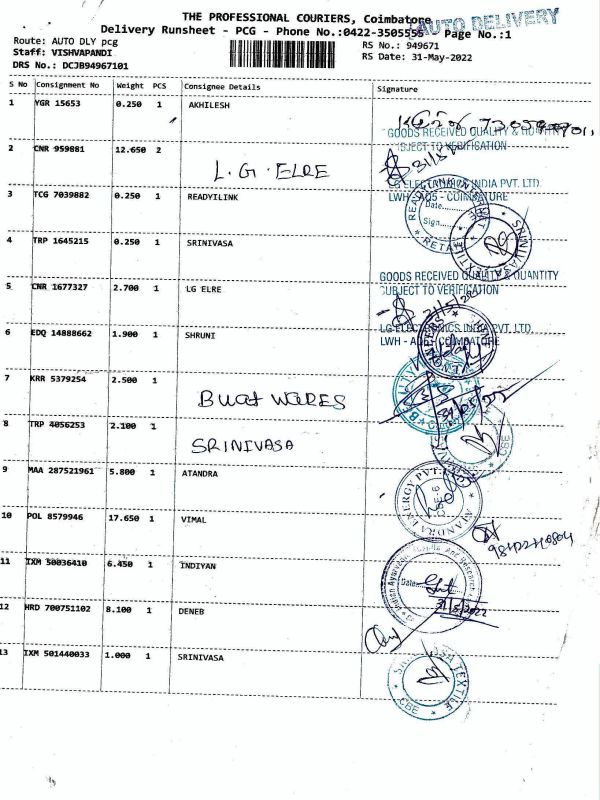 THE PROFESSIONAL COURIERS, Coimbatore
AUTO DELIVERY
Delivery Runsheet - PCG - Phone No.:0422-3505555 Page No.:1
Route: AUTO DLY pcg
RS No.: 949671
Staff: VISHVAPANDI
RS Date: 31-May-2022
DRS No.: DCJB94967101
S No Consignment No Weight PCS Consignee Details Signature
1 YGR 15653 0.250 1 AKHILESH
GOODS RECEIVED QUALITY & QUANTITY
SUBJECT TO VERIFICATION
2 CNR 959881 12.650 2 L.G. ELRE
LG ELECTRONICS INDIA PVT. LTD.
LWH - AQ5 - COIMBATORE
3 TCG 7039882 0.250 1 READYILINK
Date
Sign
4 TRP 1645215 0.250 1 SRINIVASA
GOODS RECEIVED QUALITY & QUANTITY
SUBJECT TO VERIFICATION
5 CNR 1677327 2.700 1 LG ELRE
31/5/22
LG ELECTRONICS INDIA PVT. LTD.
LWH - AQ5 - COIMBATORE
6 EDQ 14888662 1.900 1 SHRUNI
7 KRR 5379254 2.500 1
BUCH WARES
8 TRP 4056253 2.100 1
SRINIVASA
CBE
9 MAA 287521961 5.800 1 ATANDRA
ATANDRA ENERGY PVT.
10 POL 8579946 17.650 1 VIMAL
11 IXM 50036410 6.450 1 INDIYAN
Date
31/5/2022
12 HRD 700751102 8.100 1 DENEB
13 IXM 501440033 1.000 1 SRINIVASA
TEXTILE
CBE